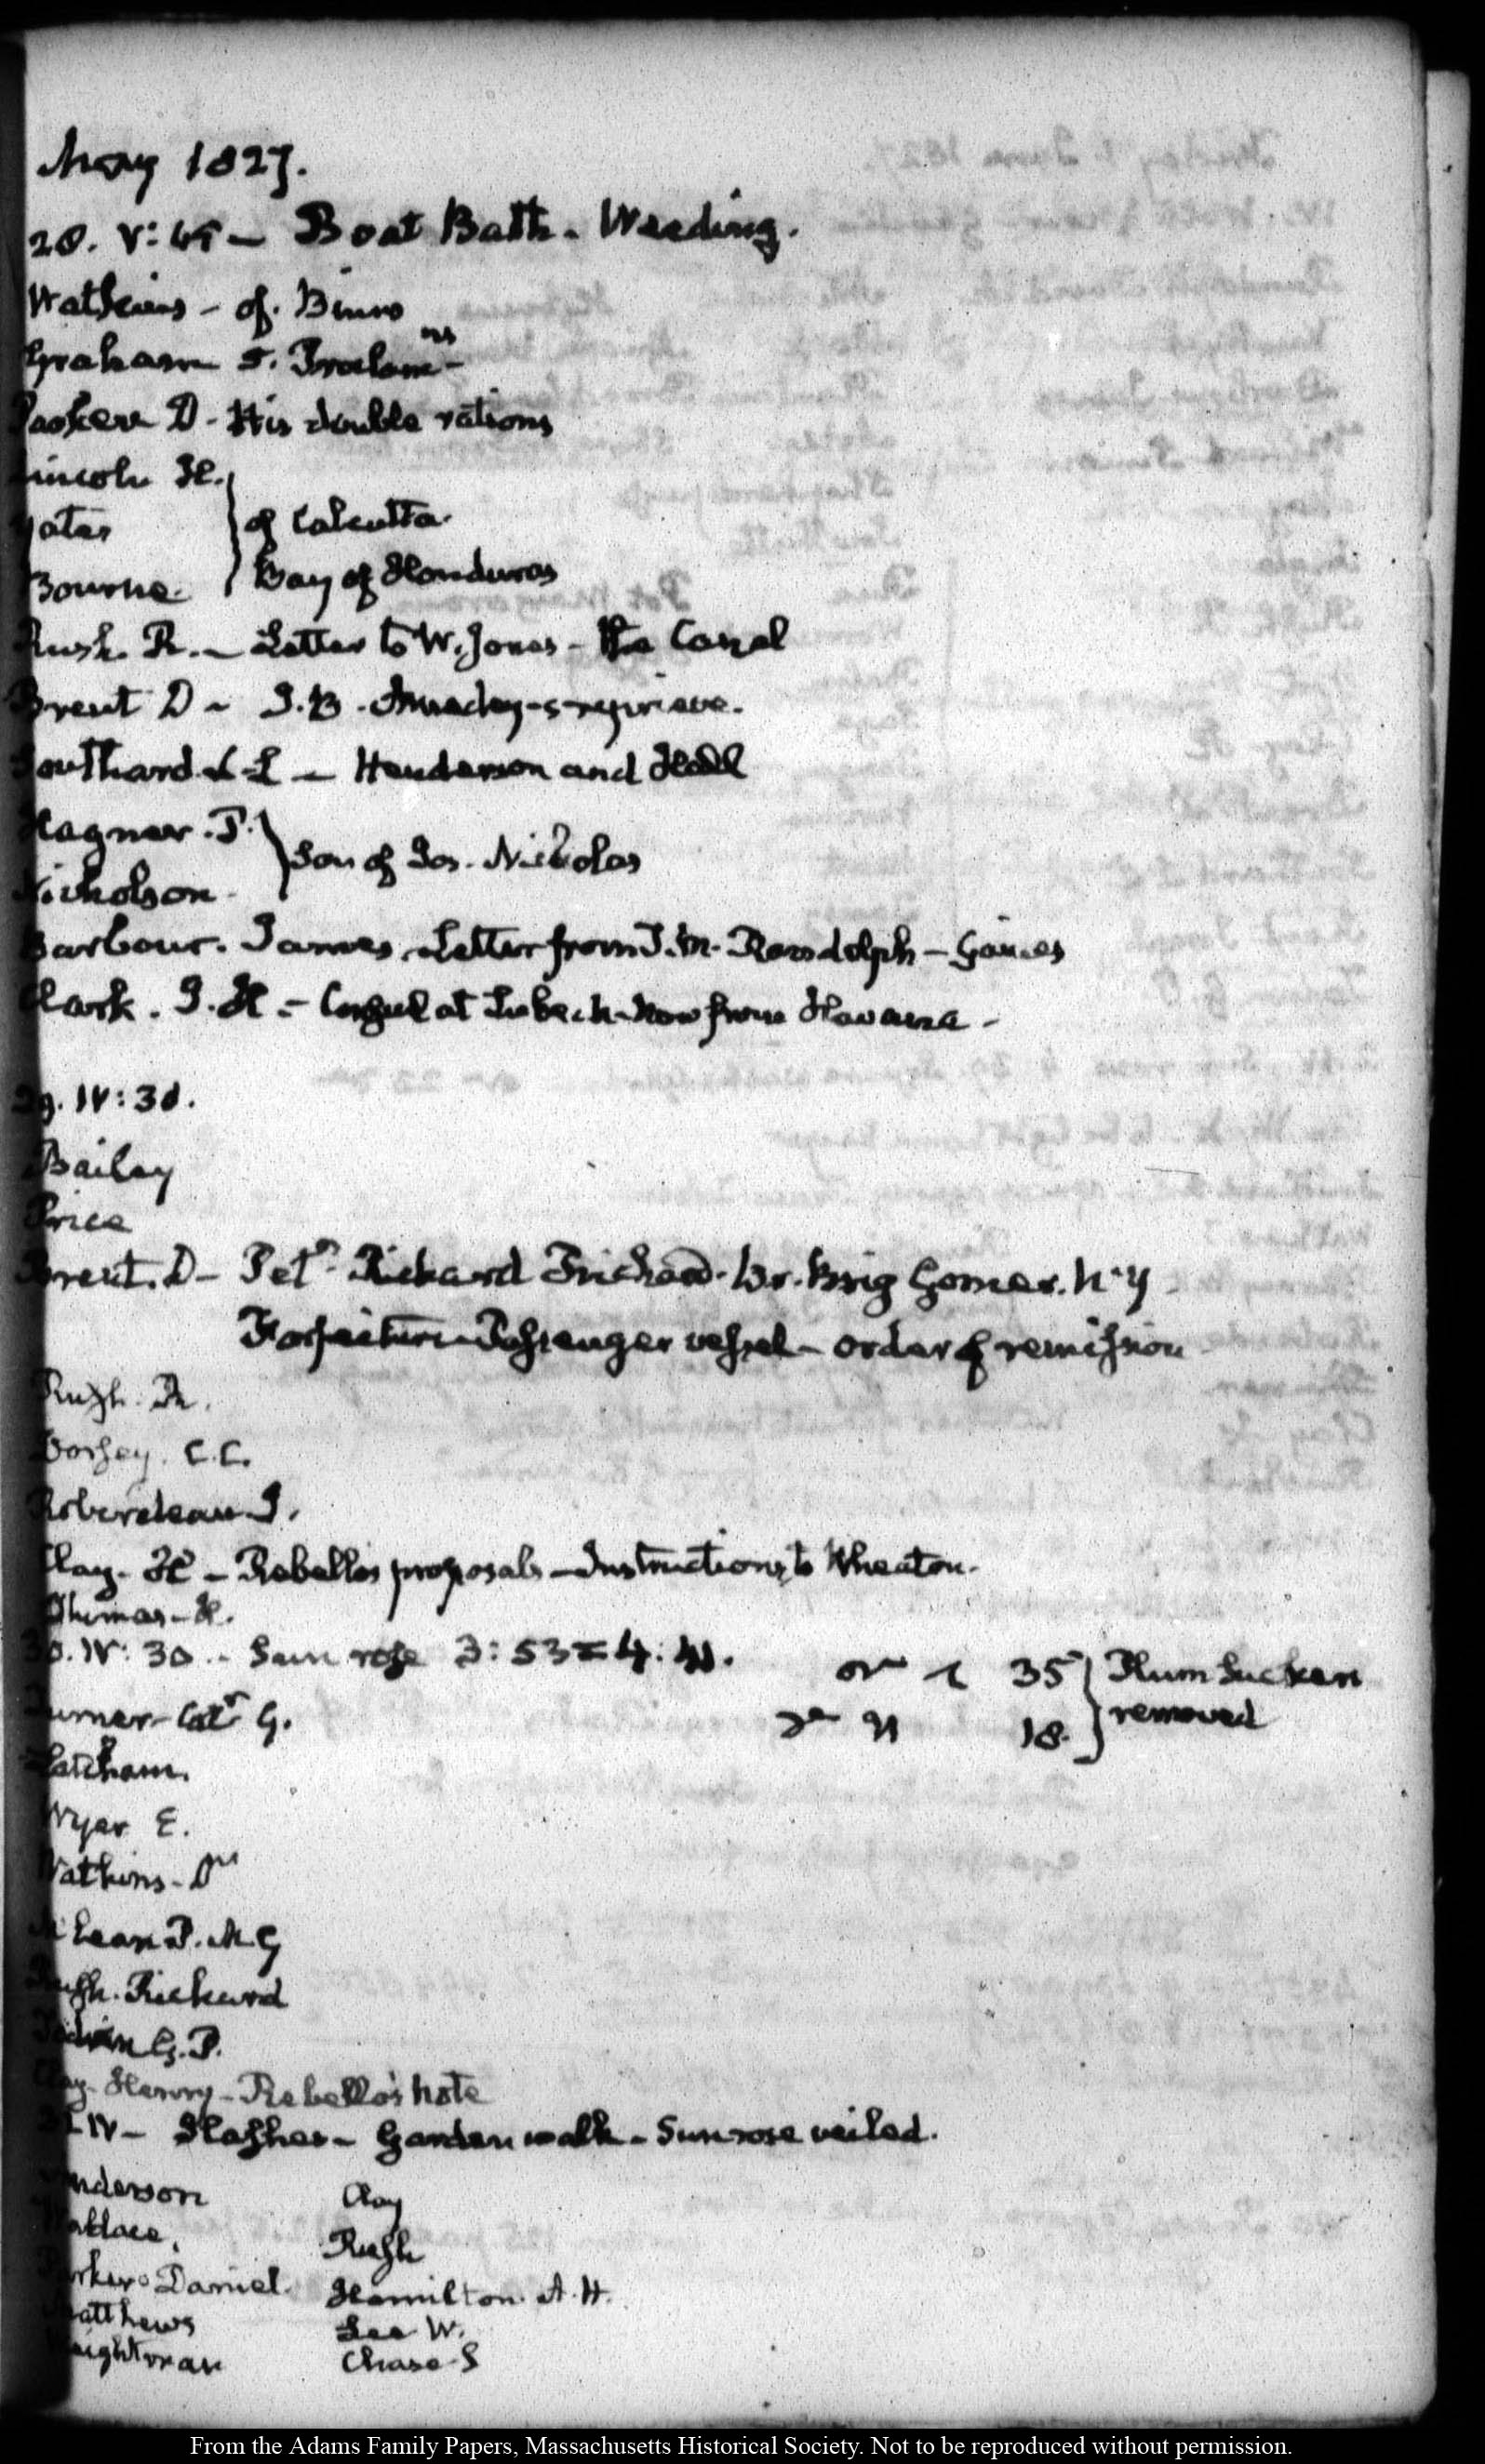 May 1827.
28. V:45 — Boat Bath. Weeding.
Watkins - of Binns
Graham G. Proclam<sup>ns</sup> -
Parker D - His double rations
Lincoln H.
Yates of Calcutta.
Bourne. Bay of Honduras
Rush. R. — Letter to W. Jones - the Canal
Brent D — J.B. reprieve.
Southard S. L — Henderson and
Hagner. P.
Son of Jos. Nicholas
Nicholson.
Barbour. James, Letter from T. M. Randolph — Gaines
Clark. J. H. - Consul at Lubeck now from Havana -
29. IV:30.
Bailey
Price
Brent. D — Pet<sup>n</sup> Richard Br. Brig Gomer. N.Y
Forfeiture Passenger vessel — order of remission
Rush. R.
Dorsey. C.C.
Roberdeau I.
Clay. H — Rebello's proposals — Instructions to Wheaton.
Thomas - H.
30. IV:30 — Sun rose 3:53 = 4: 35 Plum Suckers
18. removed
Turner - Capt<sup>n</sup> G.
Latham.
Wyer E.
Watkins - D<sup>r</sup>
McLean P.M.G
Rush. Richard
G. P.
Clay - Henry — Rebello's note
31. IV — Garden walk — Sun rose veiled.
Anderson Clay
Wallace, Rush
Parker Daniel. Hamilton A. H.
Matthews Lee W.
Weightman Chase S
From the Adams Family Papers, Massachusetts Historical Society. Not to be reproduced without permission.